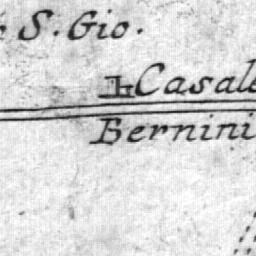 S. Gio.
Casale
Bernini